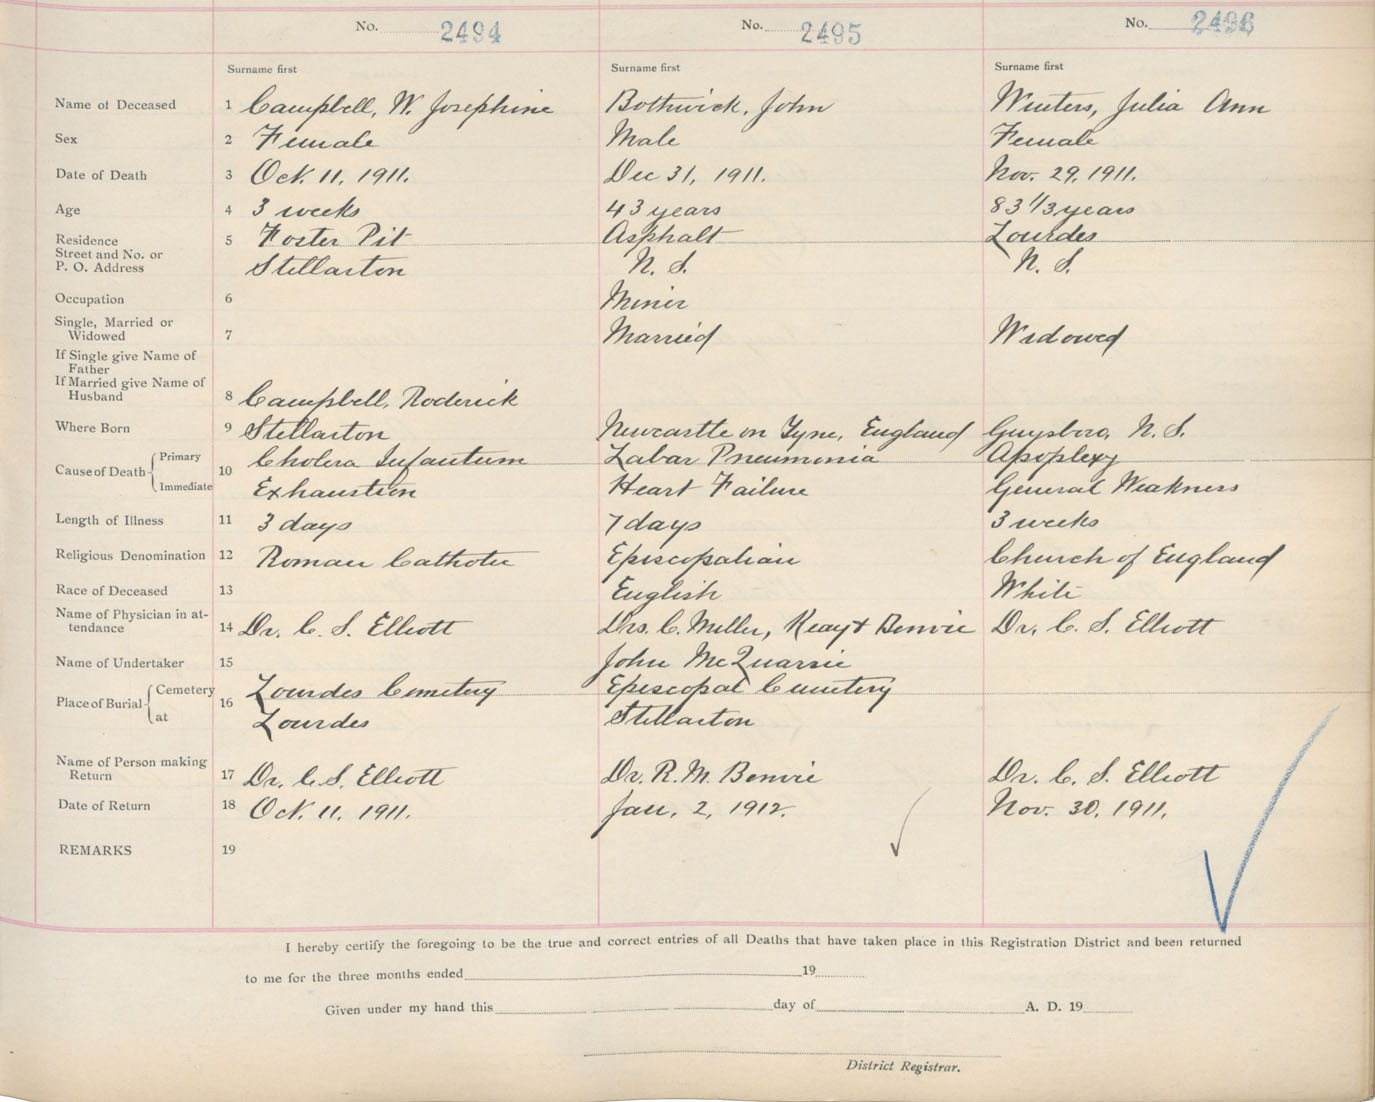 No. 2494 No. 2495 No. 2496
Surname first Surname first Surname first
Name of Deceased 1 Campbell, W. Josephine Bothwick, John Winters, Julia Ann
Sex 2 Female Male Female
Date of Death 3 Oct. 11, 1911. Dec 31, 1911. Nov. 29, 1911.
Age 4 3 weeks 43 years 83 1/3 years
Residence 5 Foster Pit Asphalt Lourdes
Street and No. or
P. O. Address Stellarton N. S. N. S.
Occupation 6 Miner
Single, Married or
Widowed 7 Married Widowed
If Single give Name of
Father
If Married give Name of
Husband 8 Campbell, Roderick
Where Born 9 Stellarton Newcastle on Tyne, England Guysboro, N. S.
Cause of Death 10 Primary Cholera Infantum Labar Pneumonia Apoplexy
Immediate Exhaustion Heart Failure General Weakness
Length of Illness 11 3 days 7 days 3 weeks
Religious Denomination 12 Roman Catholic Episcopalian Church of England
Race of Deceased 13 English White
Name of Physician in at-
tendance 14 Dr. C. S. Elliott Drs. C. Miller, Keay & Benvie Dr. C. S. Elliott
Name of Undertaker 15 John McQuarrie
Place of Burial 16 Cemetery Lourdes Cemetery Episcopal Cemetery
at Lourdes Stellarton
Name of Person making
Return 17 Dr. C. S. Elliott Dr. R. M. Benvie Dr. C. S. Elliott
Date of Return 18 Oct. 11, 1911. Jan. 2, 1912. Nov. 30, 1911.
REMARKS 19
I hereby certify the foregoing to be the true and correct entries of all Deaths that have taken place in this Registration District and been returned
to me for the three months ended 19
Given under my hand this day of A. D. 19
District Registrar.